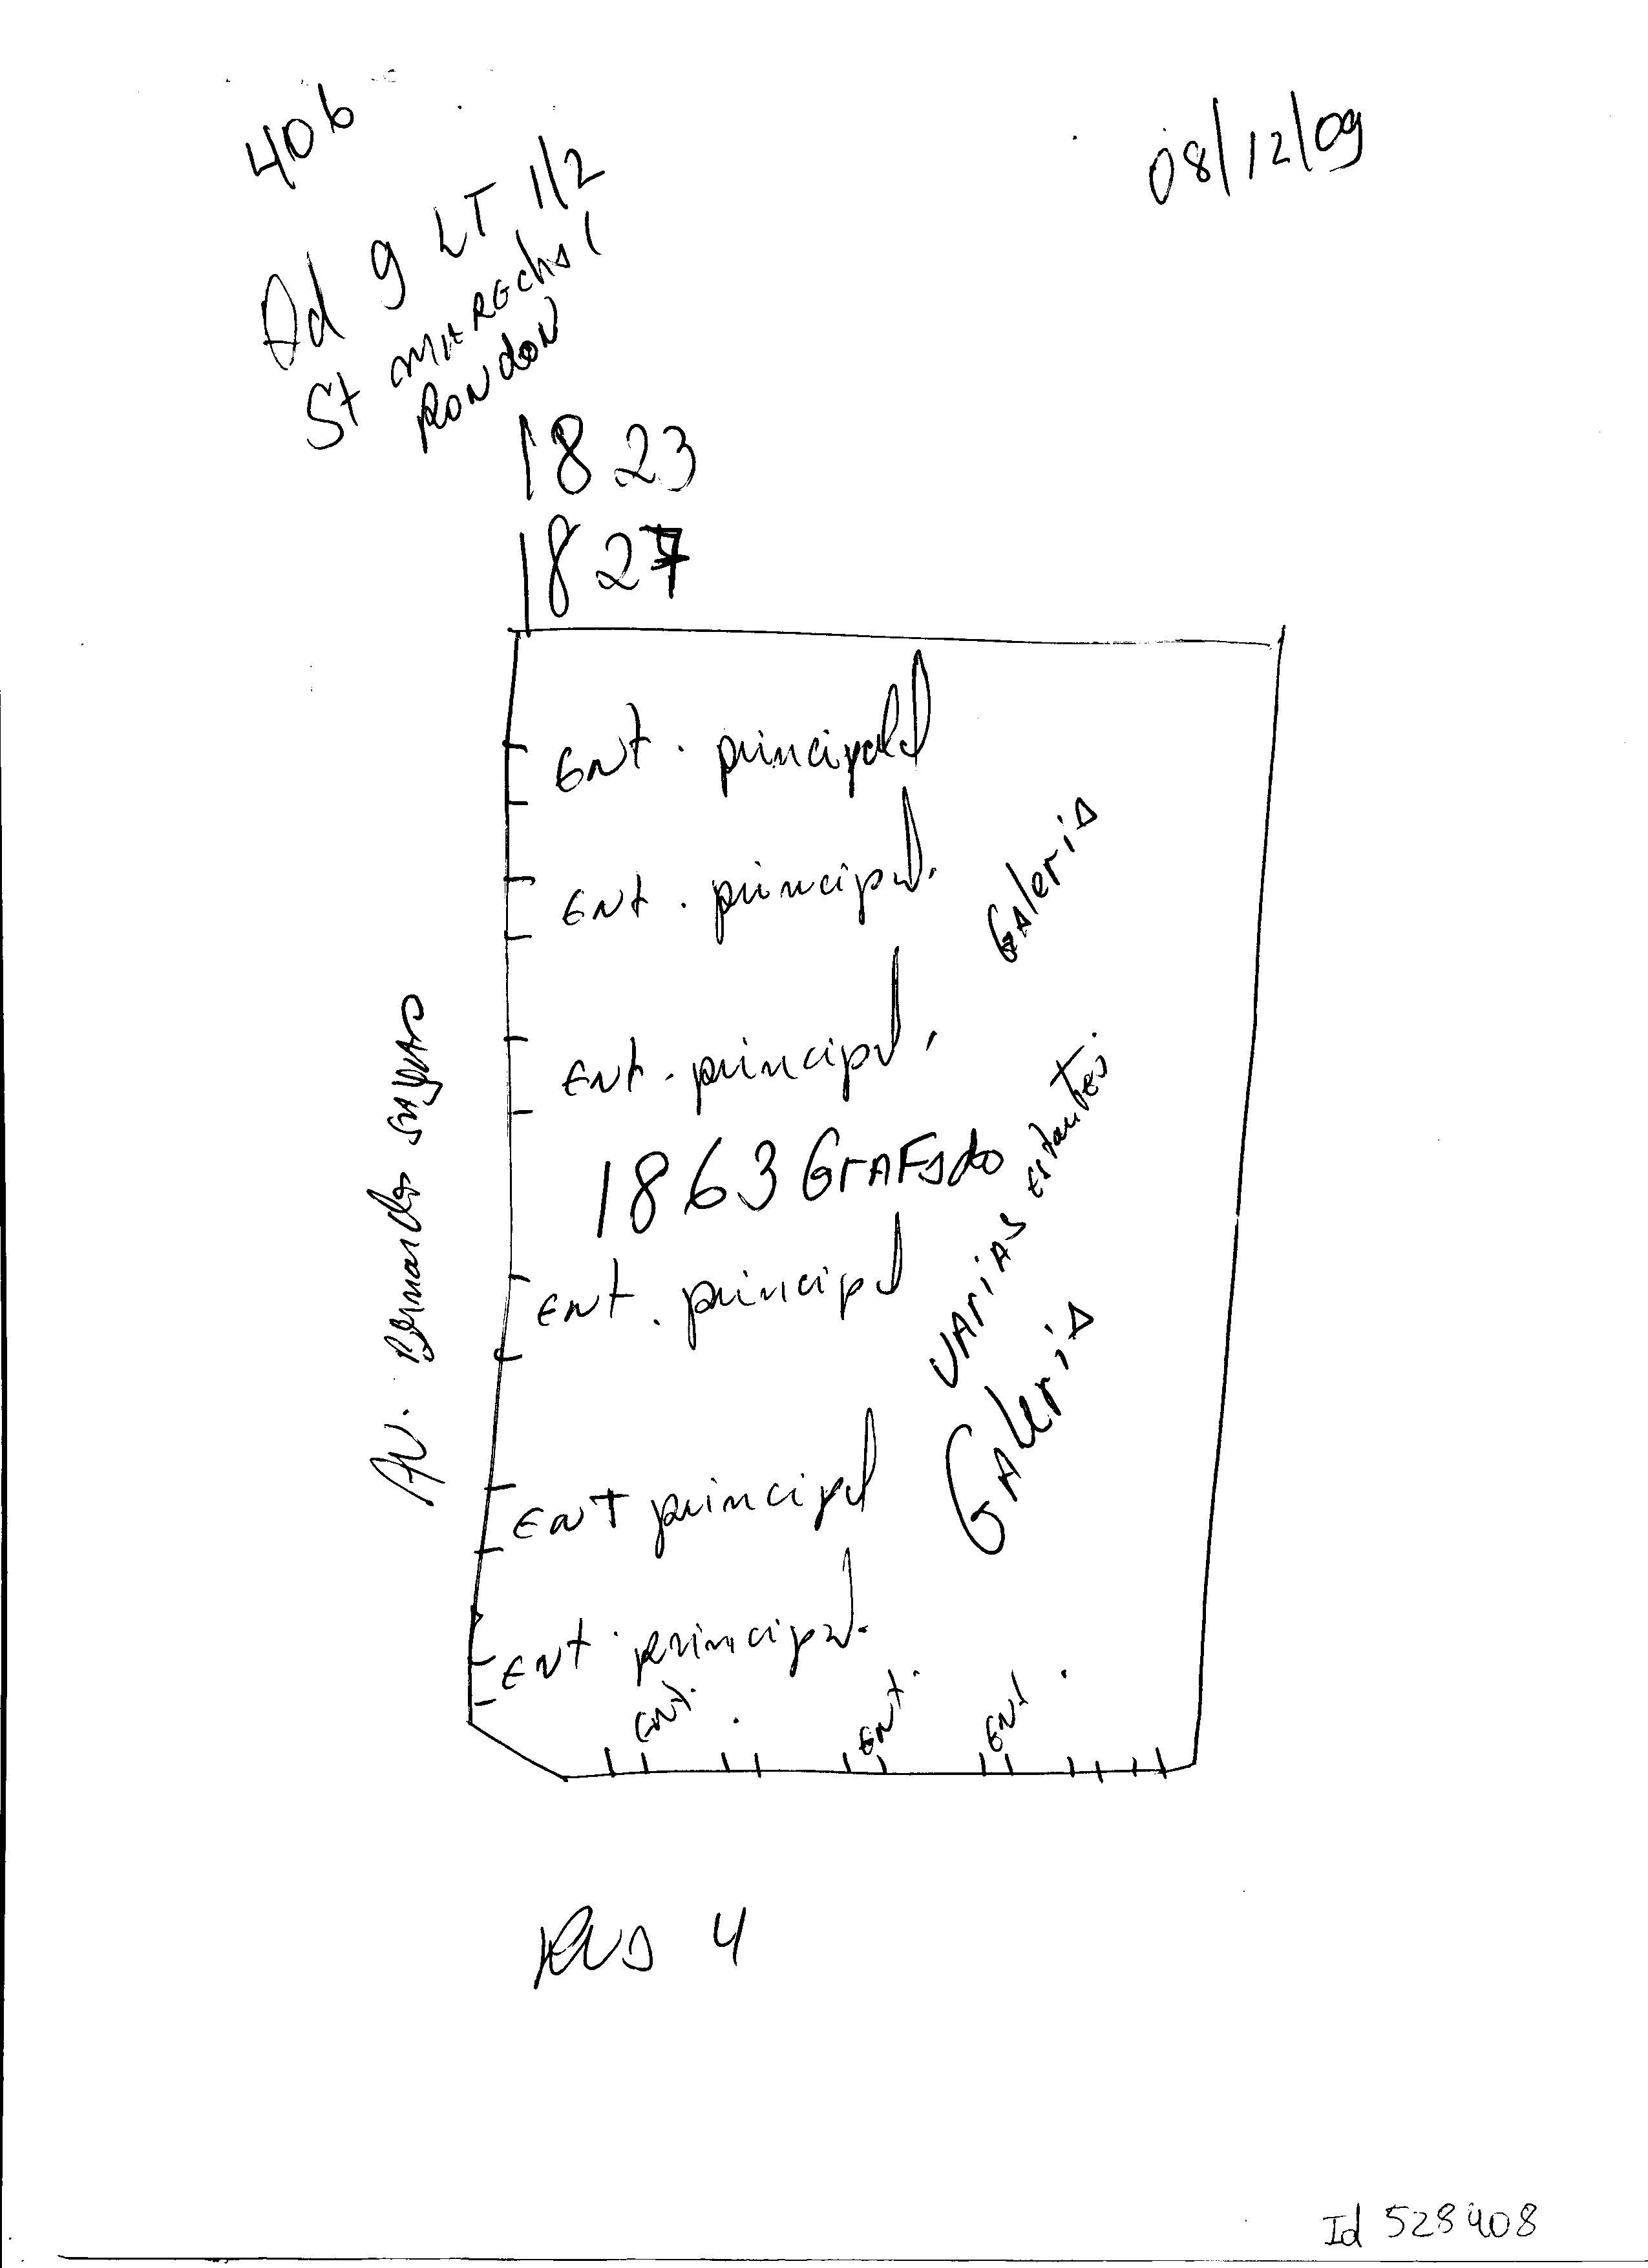 406
08/12/09
Qd 9 LT 1/2
St MARECHAl
RONdoN
1823
1827
Ent. principal
Ent. principal.
GAleria
Ent. principal.
Av. Bernardo sayao
1863 GrAFado
VAriAs estantes
Ent. principal
GAleria
EnT principal
Ent. principal.
Ent.
Ent.
Ent.
Rua 4
Id 528408